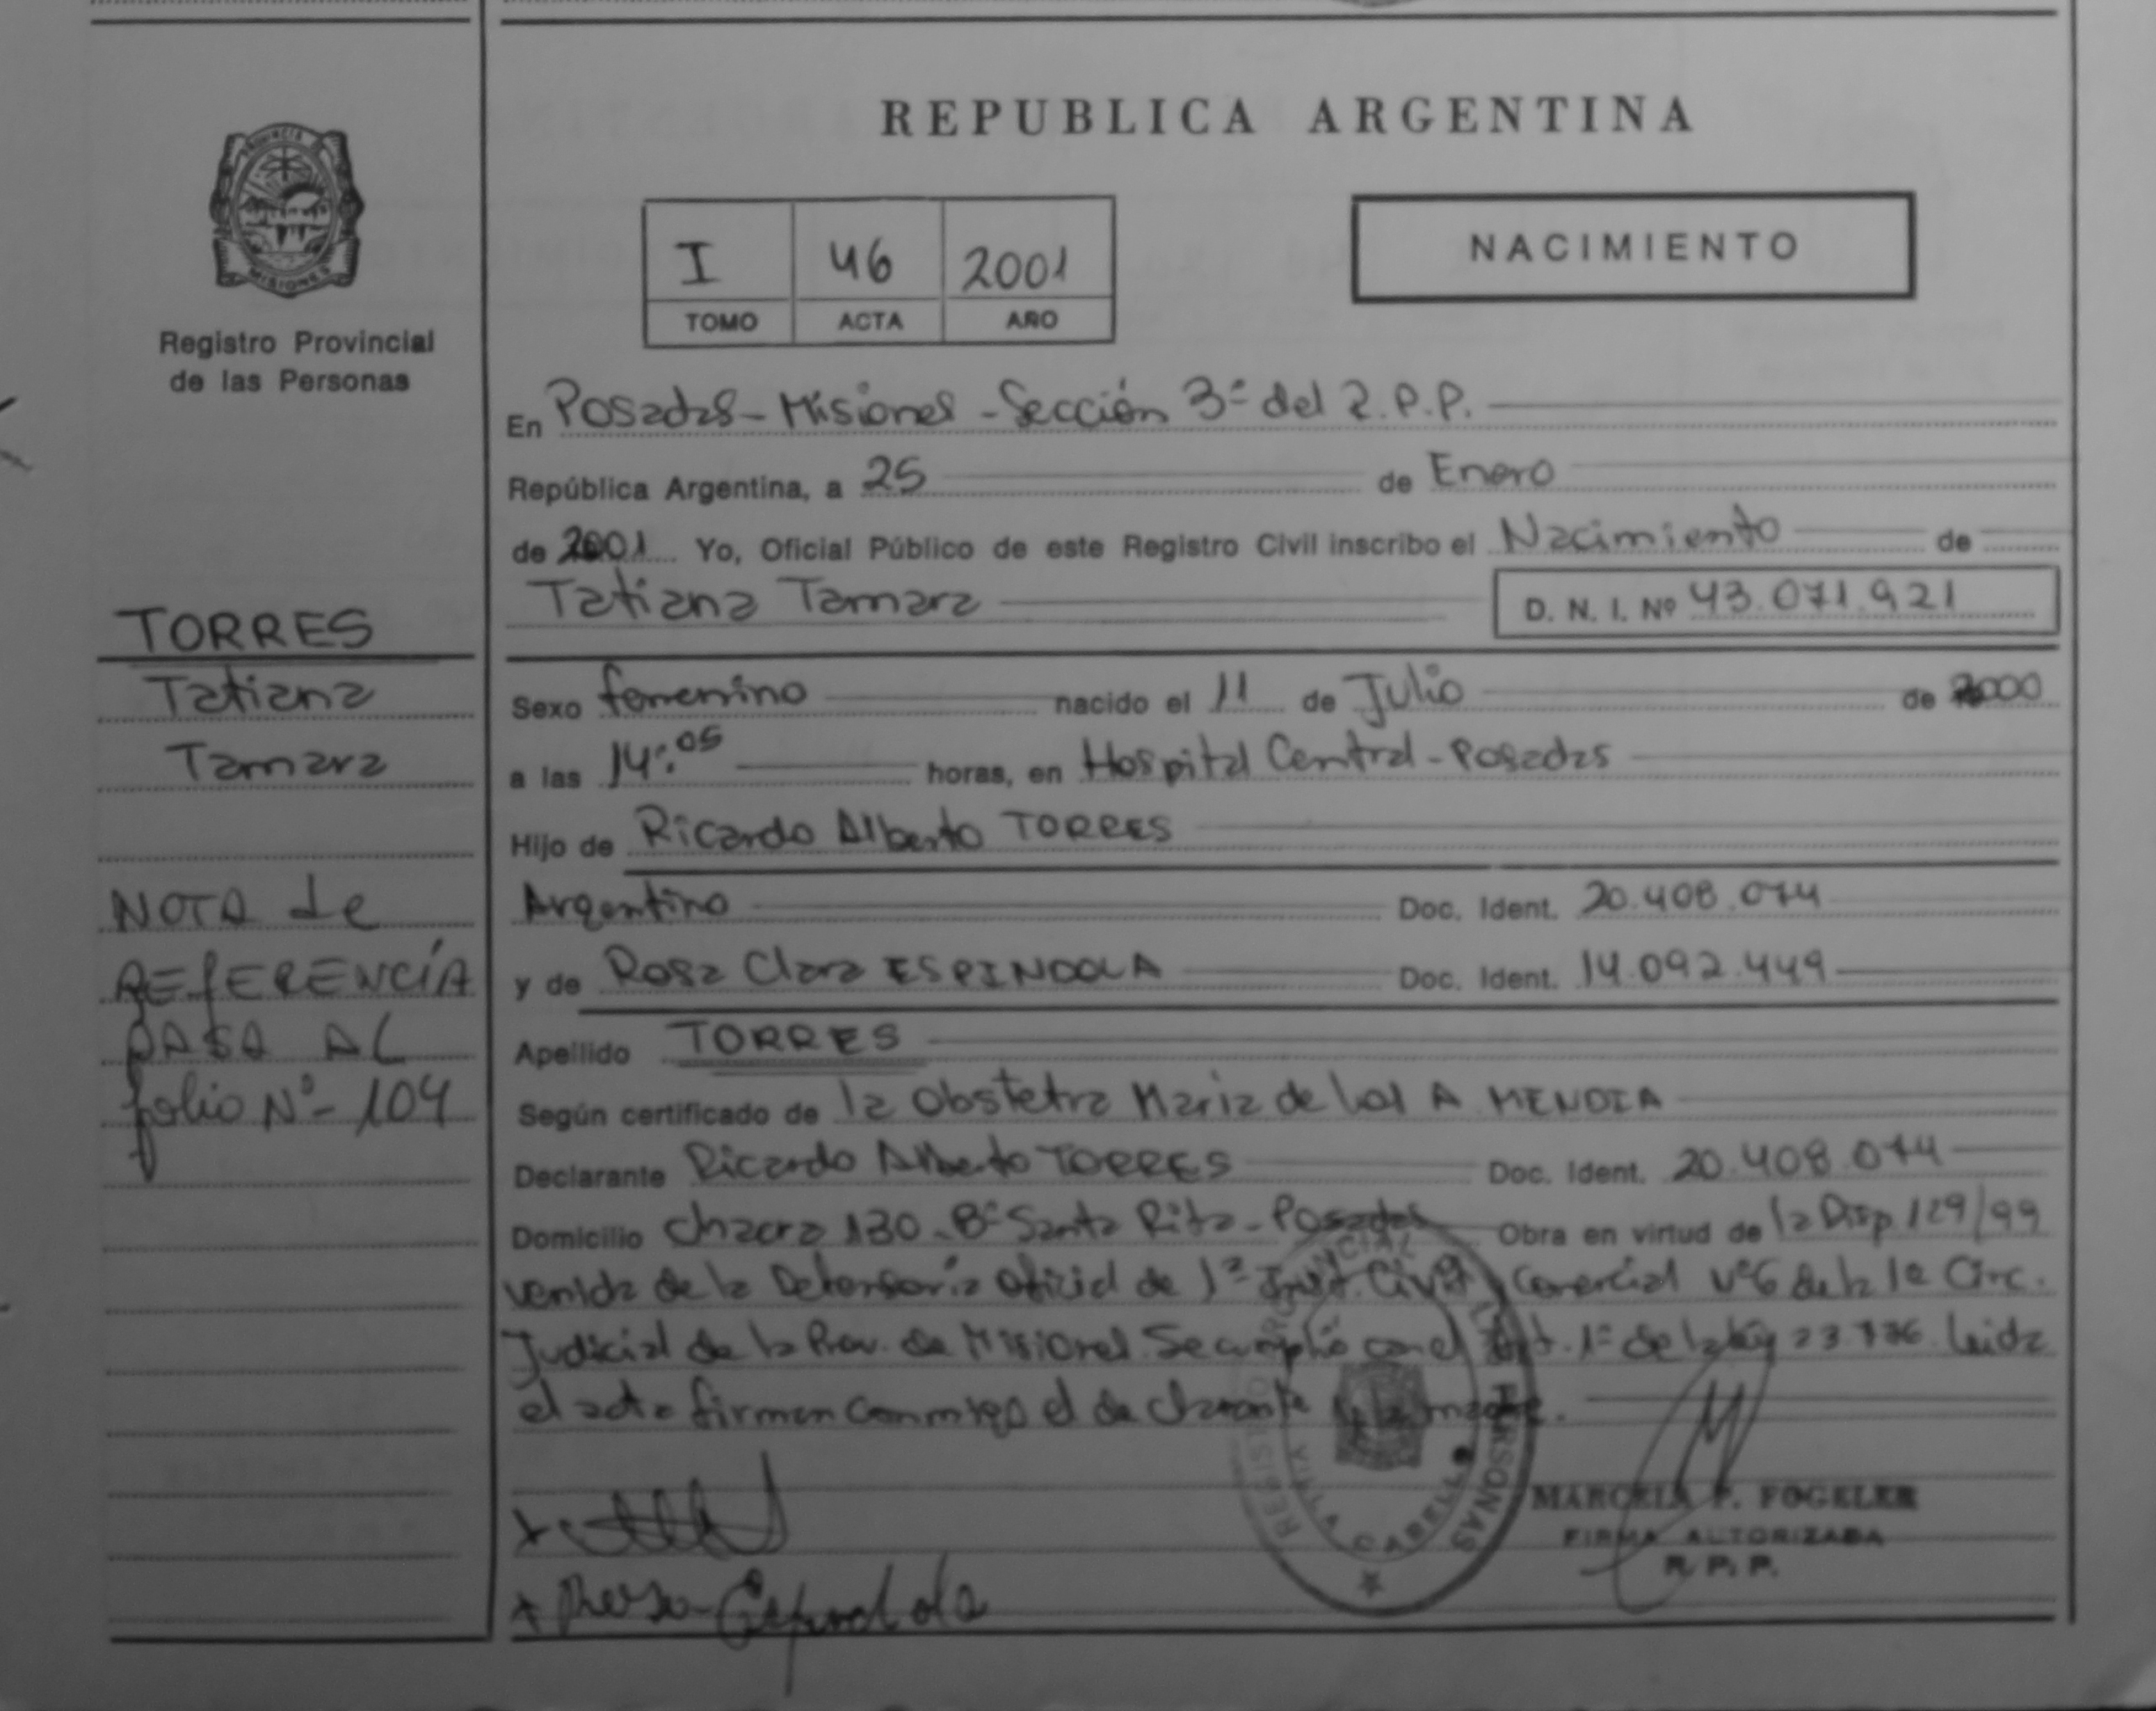 REPUBLICA ARGENTINA
PROVINCIA
MISIONES
Registro Provincial
de las Personas
I 46 2001
TOMO ACTA AÑO
NACIMIENTO
En Posadas - Misiones - Sección 3ª del R.P.P.
República Argentina, a 25 de Enero
de 2001 Yo, Oficial Público de este Registro Civil inscribo el Nacimiento de
Tatiana Tamara D. N. I. Nº 43.071.921
Sexo femenino nacido el 11 de Julio de 2000
a las 14:05 horas, en Hospital Central - Posadas
Hijo de Ricardo Alberto TORRES
Argentino Doc. Ident. 20.408.074
y de Rosa Clara ESPINDOLA Doc. Ident. 14.092.449
Apellido TORRES
Según certificado de la Obstetra Maria de los A MENDIA
Declarante Ricardo Alberto TORRES Doc. Ident. 20.408.074
Domicilio chacra 130 - Bº Santa Rita - Posadas Obra en virtud de la Disp. 129/99
venida de la Defensoría Oficial de 1ª Inst. Civil y Comercial Nº6 de la 1ª Circ.
Judicial de la Prov. de Misiones. Se cumplió con el Art. 1º de la Ley 23.776. Leída
el acta firman conmigo el declarante y la madre.
TORRES
Tatiana
Tamara
NOTA de
REfERENCÍA
PASA AL
folio Nº- 104
Rosa Espindola
REGISTRO PROVINCIAL DE LAS PERSONAS
VILLA CABELLO
MARCELA P. FOGELER
FIRMA AUTORIZADA
R. P. P.